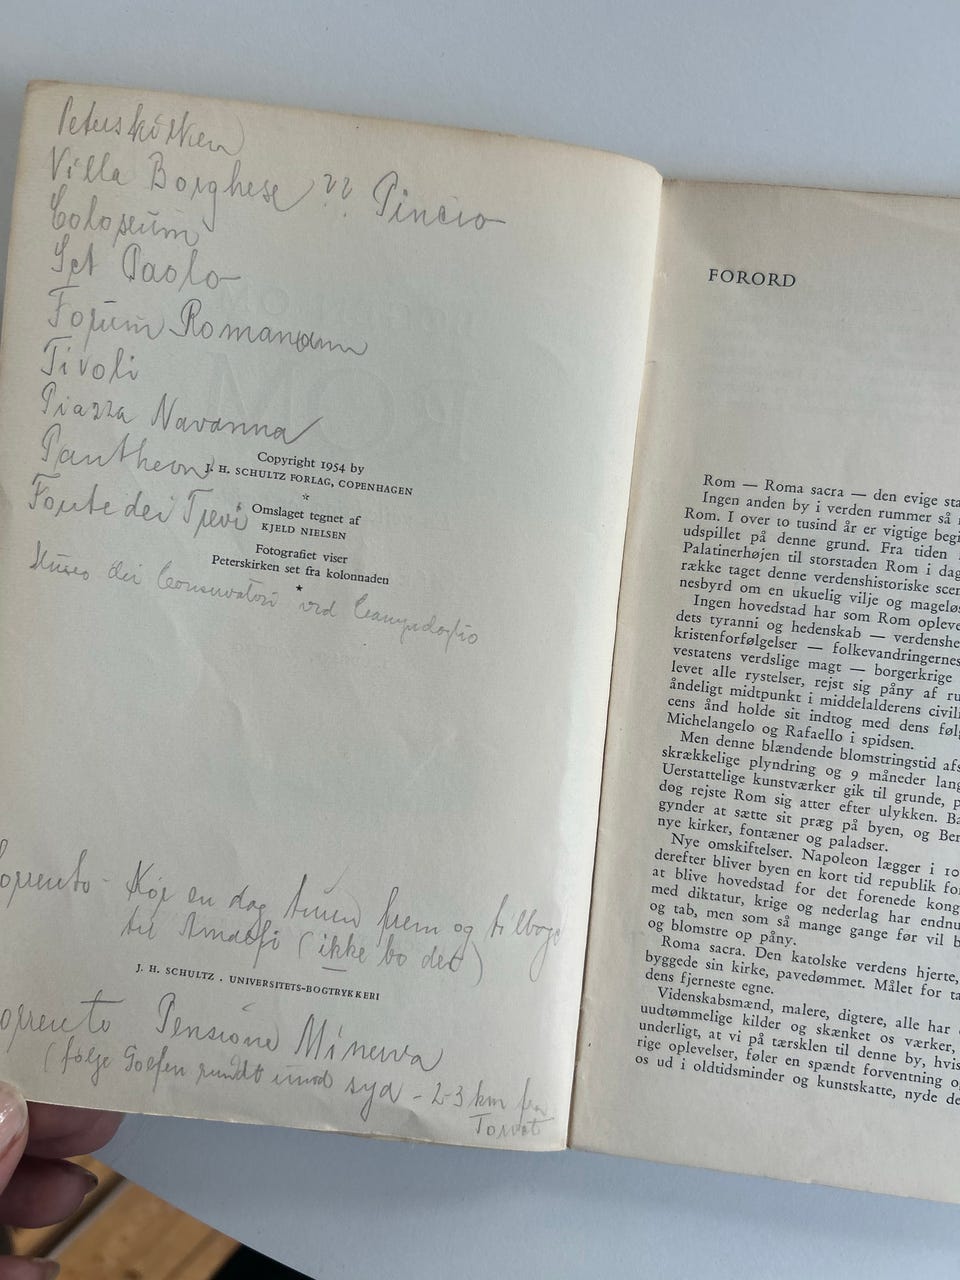 Peterskirken
Villa Borghese ?? Pincio
Coloseum
Sct Paolo
Forum Romanum
Tivoli
Piazza Navanna
Pantheon
Copyright 1954 by
J. H. SCHULTZ FORLAG, COPENHAGEN
Fonte dei Trevi
Omslaget tegnet af
KJELD NIELSEN
Fotografiet viser
Peterskirken set fra kolonnaden
Museo dei Conservatori ved
orrento - Kør en dag turen frem og tilbage
til Amalfi (ikke bo der)
J. H. SCHULTZ . UNIVERSITETS-BOGTRYKKERI
orrento Pensione Minerva
(følge Golfen rundt mod syd - 2-3 km fra
Torvet
FORORD
Rom — Roma sacra — den evige sta
Ingen anden by i verden rummer så
Rom. I over to tusind år er vigtige begi
udspillet på denne grund. Fra tiden
Palatinerhøjen til storstaden Rom i dag
række taget denne verdenshistoriske scen
nesbyrd om en ukuelig vilje og mageløs
Ingen hovedstad har som Rom opleve
dets tyranni og hedenskab — verdenshe
kristenforfølgelser — folkevandringernes
vestatens verdslige magt — borgerkrige
levet alle rystelser, rejst sig påny af ru
åndeligt midtpunkt i middelalderens civili
cens ånd holde sit indtog med dens følg
Michelangelo og Rafaello i spidsen.
Men denne blændende blomstringstid afs
skrækkelige plyndring og 9 måneder lang
Uerstattelige kunstværker gik til grunde, p
dog rejste Rom sig atter efter ulykken. Ba
gynder at sætte sit præg på byen, og Ber
nye kirker, fontæner og paladser.
Nye omskiftelser. Napoleon lægger i 10
derefter bliver byen en kort tid republik fo
at blive hovedstad for det forenede kong
med diktatur, krige og nederlag har endnu
og tab, men som så mange gange før vil b
og blomstre op påny.
Roma sacra. Den katolske verdens hjerte,
byggede sin kirke, pavedømmet. Målet for ta
dens fjerneste egne.
Videnskabsmænd, malere, digtere, alle har
uudtømmelige kilder og skænket os værker,
underligt, at vi på tærsklen til denne by, hvis
rige oplevelser, føler en spændt forventning o
os ud i oldtidsminder og kunstskatte, nyde de